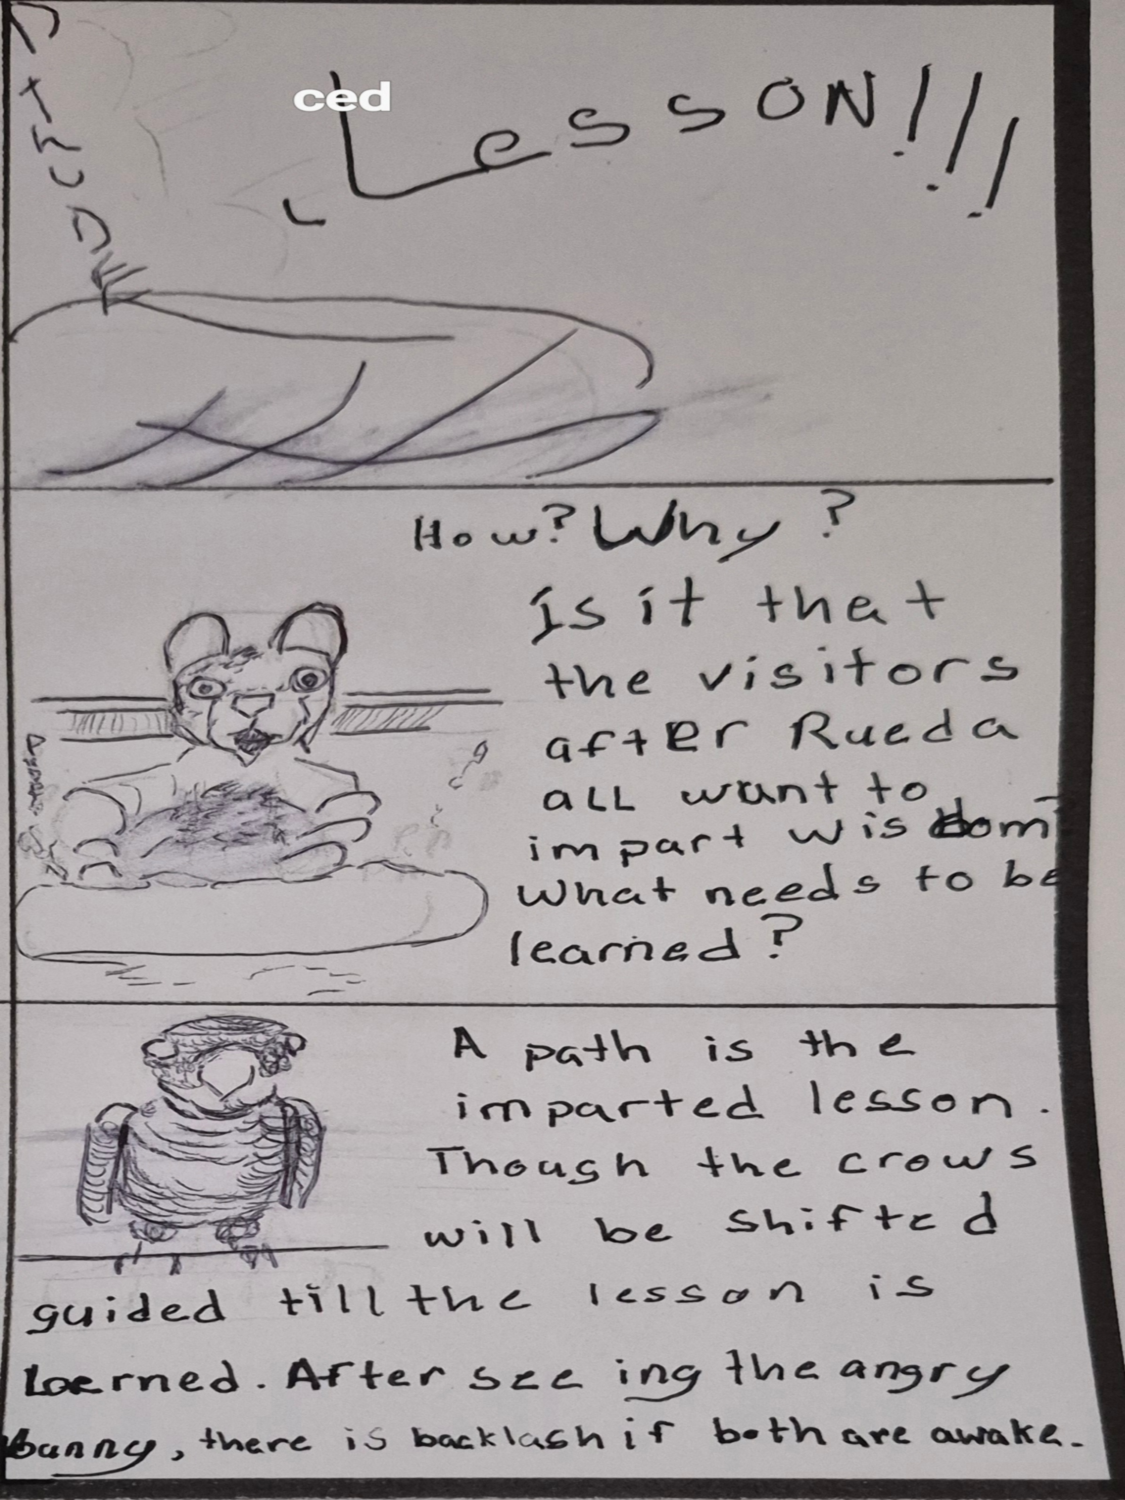 ced
Lesson!!!
How? Why?
Is it that
the visitors
after Rueda
all want to
impart wisdom
What needs to be
learned?
A path is the
imparted lesson.
Though the crows
will be shifted
guided till the lesson is
Loerned. After seeing the angry
bunny, there is backlash if both are awake.